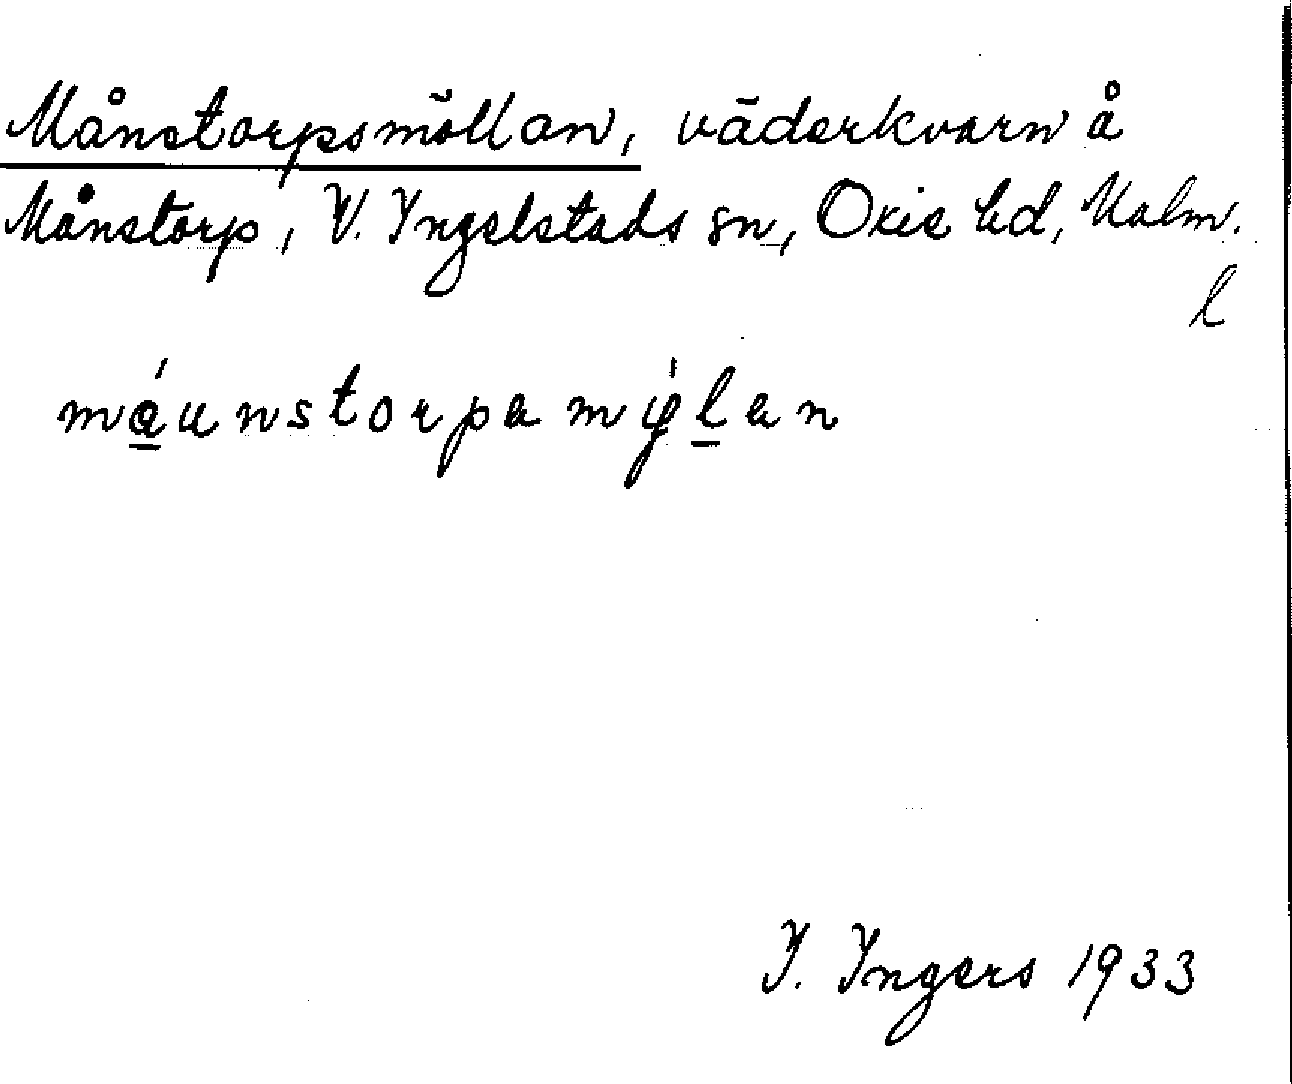 Månstorpsmöllan, väderkvarn å
Månstorp, V. Ingelstads sn, Oxie hd, Malm.
l
máunstorpamýlan
I. Ingers 1933